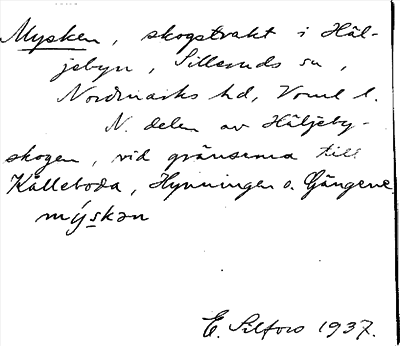 Mysken, skogstrakt i Häl-
jebyn, Silleruds sn,
Nordmarks hd, Vrml l.
N. delen av Häljeby-
skogen, vid gränserna till
Kålleboda, Hynningen o. Gängene
mýskən
E. Silfors 1937.